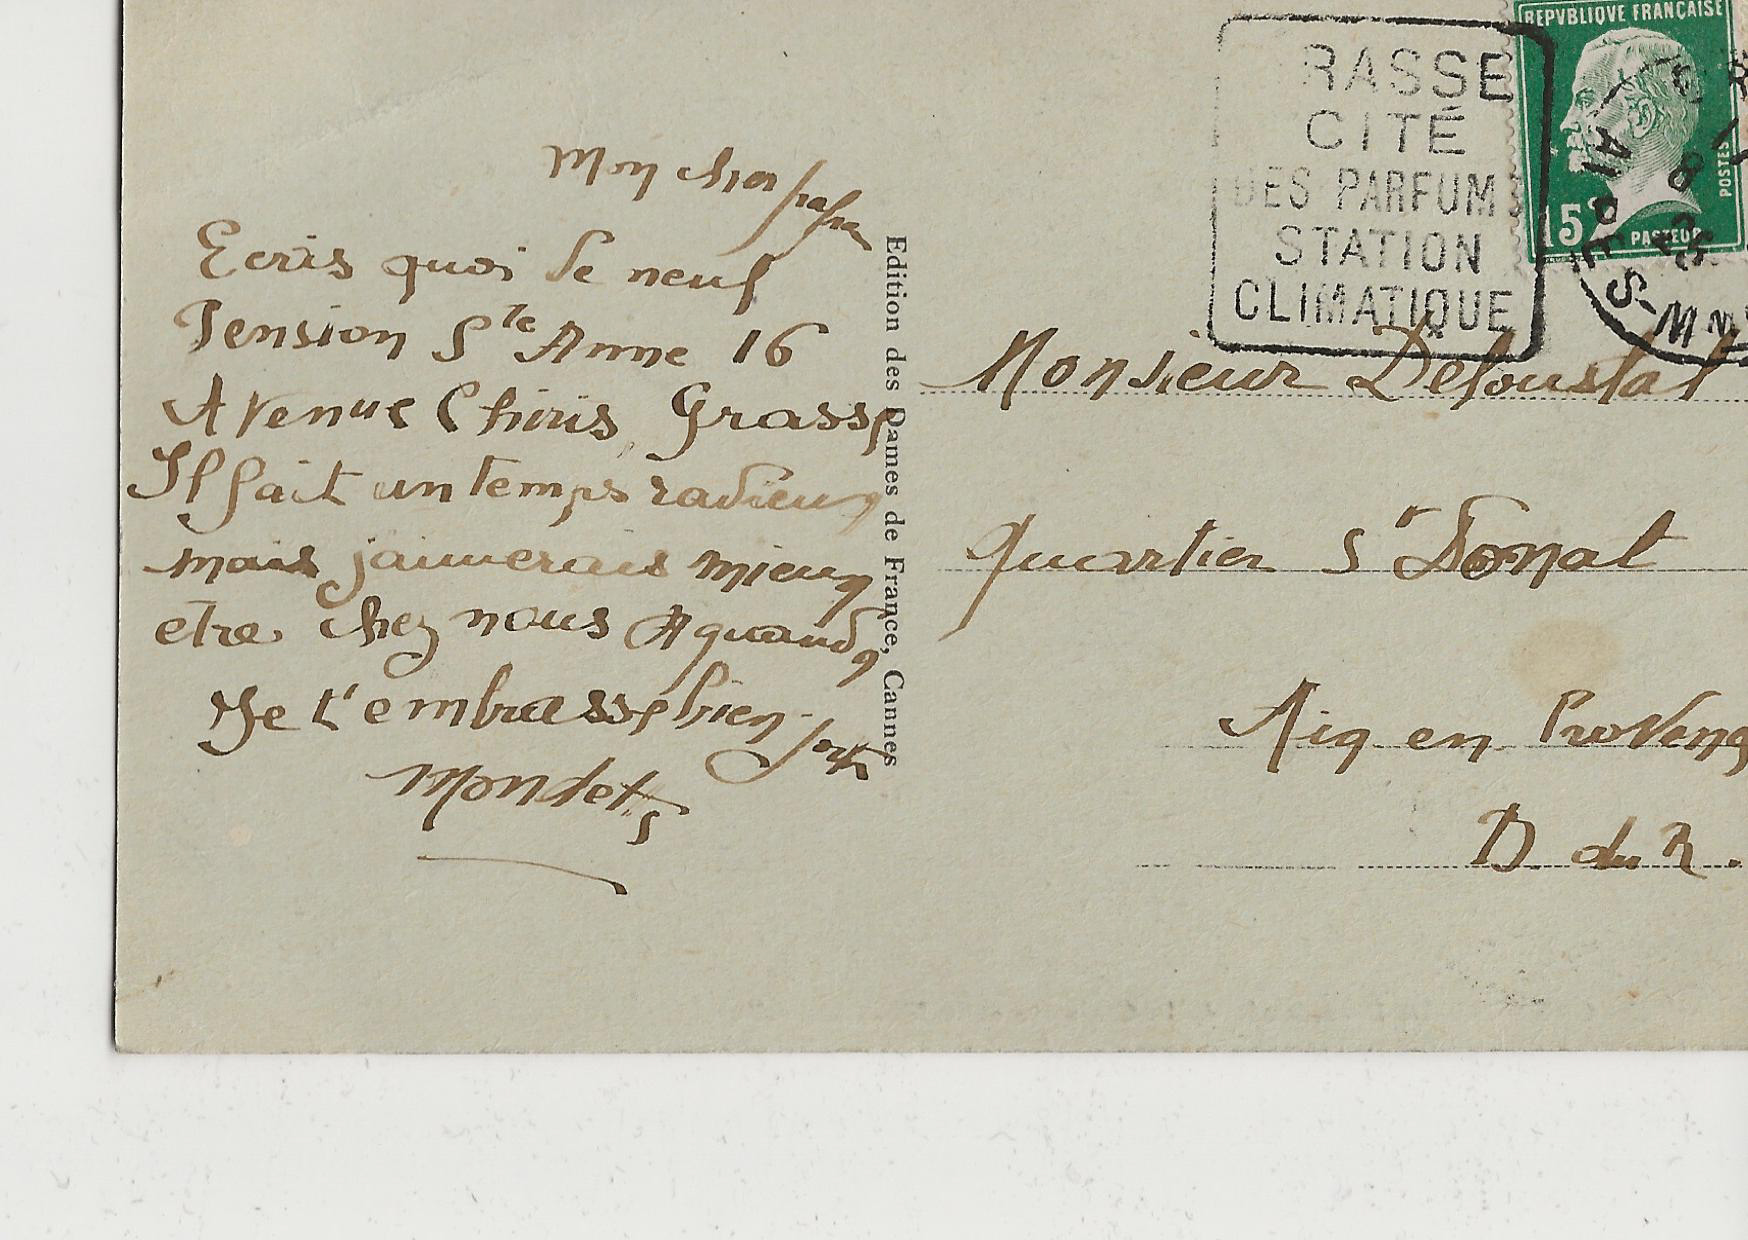 Mon cher papa
Ecris quoi de neuf
Pension Ste Anne 16
Avenue Chiris Grasse
Il fait un temps radieux
mais jaimerais mieux
etre chez nous A quand
Je t'embrasse bien fort
Mondette
Edition des Dames de France, Cannes
RASSE
CITÉ
DES PARFUMS
STATION
CLIMATIQUE
REPVBLIQVE FRANÇAISE
POSTES
15c
PASTEUR
ALPES-M
Monsieur Deloustal
quartier St Donat
Aix en Provenc
B du R.